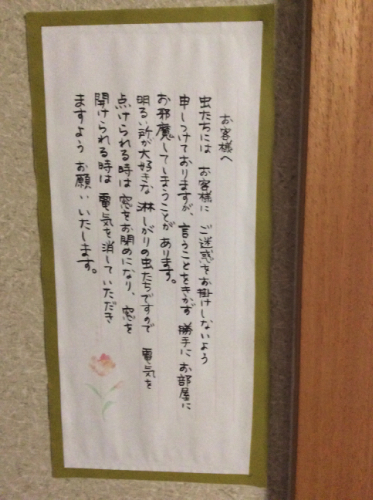 お客様へ
虫たちには お客様に ご迷惑をお掛けしないよう
申しつけておりますが、言うことをきかず 勝手に お部屋に
お邪魔してしまうことが あります。
明るい所が大好きな 淋しがりの虫たちですので 電気を
点けられる時は 窓をお閉めになり、窓を
開けられる時は 電気を消していただき
ますよう お願いいたします。